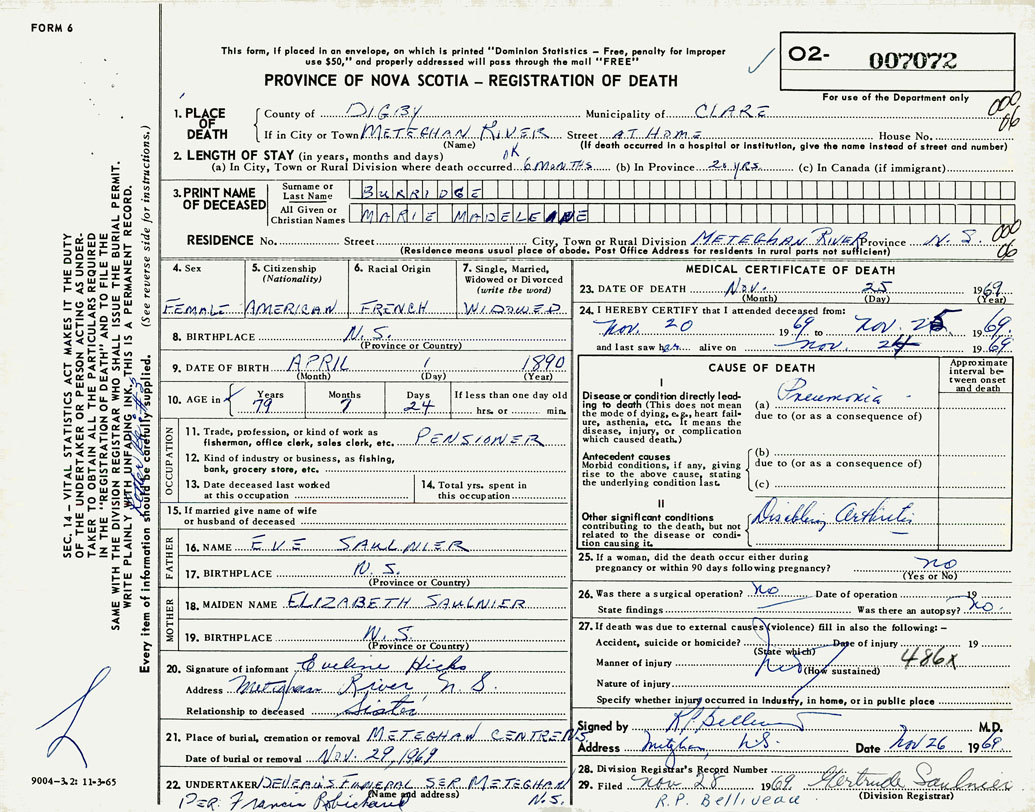 FORM 6
This form, if placed in an envelope, on which is printed "Dominion Statistics – Free, penalty for improper
use $50," and properly addressed will pass through the mail "FREE"
PROVINCE OF NOVA SCOTIA – REGISTRATION OF DEATH
O2- 007072
For use of the Department only
000
06
1. PLACE OF DEATH
County of DIGBY Municipality of CLARE
If in City or Town METEGHAN RIVER Street AT HOME House No.
(Name) (If death occurred in a hospital or institution, give the name instead of street and number)
2. LENGTH OF STAY (in years, months and days) OK
(a) In City, Town or Rural Division where death occurred 6 MONTHS (b) In Province 20 YRS. (c) In Canada (if immigrant)
3. PRINT NAME OF DECEASED
Surname or Last Name BURRIDGE
All Given or Christian Names MARIE MADELEINE
RESIDENCE No. Street City, Town or Rural Division METEGHAN RIVER Province N.S.
(Residence means usual place of abode. Post Office Address for residents in rural parts not sufficient)
000
06
4. Sex FEMALE
5. Citizenship (Nationality) AMERICAN
6. Racial Origin FRENCH
7. Single, Married, Widowed or Divorced (write the word) WIDOWED
8. BIRTHPLACE N.S.
(Province or Country)
9. DATE OF BIRTH APRIL 1 1890
(Month) (Day) (Year)
10. AGE in Years Months Days If less than one day old
79 7 24 hrs. or min.
OCCUPATION
11. Trade, profession, or kind of work as
fisherman, office clerk, sales clerk, etc. PENSIONER
12. Kind of industry or business, as fishing,
bank, grocery store, etc.
13. Date deceased last worked
at this occupation
14. Total yrs. spent in
this occupation
15. If married give name of wife
or husband of deceased
FATHER
16. NAME EVE SAULNIER
17. BIRTHPLACE N.S.
(Province or Country)
MOTHER
18. MAIDEN NAME ELIZABETH SAULNIER
19. BIRTHPLACE N.S.
(Province or Country)
20. Signature of informant Eveline Hicks
Address Meteghan River, N.S.
Relationship to deceased Sister
21. Place of burial, cremation or removal METEGHAN CENTRE N.S.
Date of burial or removal NOV. 29, 1969
22. UNDERTAKER DEVEAU'S FUNERAL SER METEGHAN
(Name and address) N.S.
PER. Francis Robichaud
MEDICAL CERTIFICATE OF DEATH
23. DATE OF DEATH Nov. 25 1969
(Month) (Day) (Year)
24. I HEREBY CERTIFY that I attended deceased from:
Nov. 20 1969 to Nov. 25 1969
and last saw her alive on Nov. 24 1969
CAUSE OF DEATH
Approximate interval between onset and death
I
Disease or condition directly leading to death (This does not mean the mode of dying, e.g., heart failure, asthenia, etc. It means the disease, injury, or complication which caused death.)
(a) Pneumonia
due to (or as a consequence of)
Antecedent causes
Morbid conditions, if any, giving rise to the above cause, stating the underlying condition last.
(b)
due to (or as a consequence of)
(c)
II
Other significant conditions contributing to the death, but not related to the disease or condition causing it.
Disabling Arthritis
25. If a woman, did the death occur either during
pregnancy or within 90 days following pregnancy? no
(Yes or No)
26. Was there a surgical operation? No Date of operation 19
State findings Was there an autopsy? No.
27. If death was due to external causes (violence) fill in also the following: –
Accident, suicide or homicide? Date of injury 19
(State which)
Manner of injury 486X
(How sustained)
Nature of injury
Specify whether injury occurred in industry, in home, or in public place
Signed by R.P. Belliveau M.D.
Address Meteghan, N.S. Date Nov 26 1969
28. Division Registrar's Record Number
29. Filed Nov 28 1969 Gertrude Saulnier
(Division Registrar)
R.P. Belliveau
SEC. 14 – VITAL STATISTICS ACT MAKES IT THE DUTY
OF THE UNDERTAKER OR PERSON ACTING AS UNDER-
TAKER TO OBTAIN ALL THE PARTICULARS REQUIRED
IN THE "REGISTRATION OF DEATH" AND TO FILE THE
SAME WITH THE DIVISION REGISTRAR WHO SHALL ISSUE THE BURIAL PERMIT.
WRITE PLAINLY WITH UNFADING INK. THIS IS A PERMANENT RECORD.
Every item of information should be carefully supplied. (See reverse side for instructions.)
9004–3.2: 11-3-65